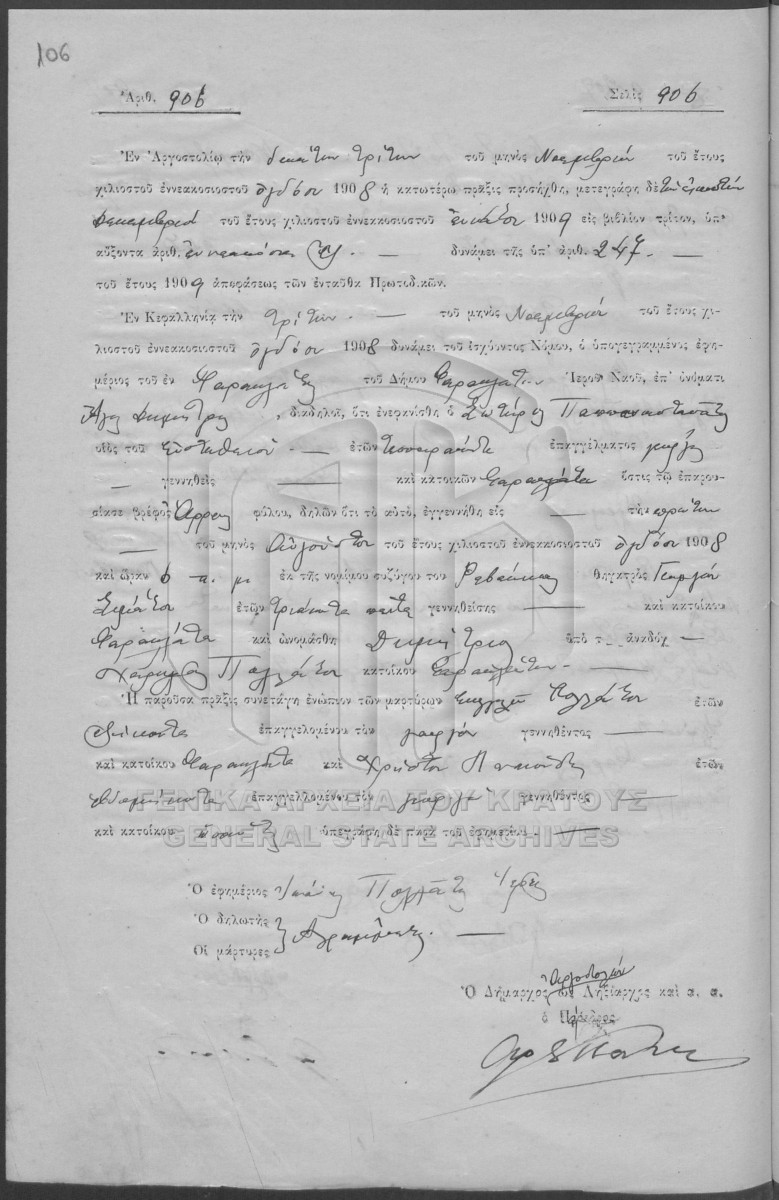 106
Ἀριθ. 906
Σελὶς 906
Ἐν Ἀργοστολίῳ τὴν δεκάτην τρίτην τοῦ μηνὸς Νοεμβρίου τοῦ ἔτους
χιλιοστοῦ ἐννεακοσιοστοῦ ὀγδόου 1908 ἡ κατωτέρω πρᾶξις προσήχθη, μετεγράφη δὲ τὴν εἰκοστὴν
Δεκεμβρίου τοῦ ἔτους χιλιοστοῦ ἐννεακοσιοστοῦ ἐννάτου 1909 εἰς βιβλίον τρίτον, ὑπ'
αὔξοντα ἀριθ. ἐννεακόσια ἓξ. — δυνάμει τῆς ὑπ' ἀριθ. 247. —
τοῦ ἔτους 1909 ἀποφάσεως τῶν ἐνταῦθα Πρωτοδικῶν.
Ἐν Κεφαλληνίᾳ τὴν τρίτην. — τοῦ μηνὸς Νοεμβρίου τοῦ ἔτους χι-
λιοστοῦ ἐννεακοσιοστοῦ ὀγδόου 1908 δυνάμει τοῦ ἰσχύοντος Νόμου, ὁ ὑπογεγραμμένος ἐφη-
μέριος τοῦ ἐν Φαρακλάτᾳ τοῦ Δήμου Φαρακλάτων Ἱεροῦ Ναοῦ, ἐπ' ὀνόματι
Ἁγίου Δημητρίου, διαδηλοῖ, ὅτι ἐνεφανίσθη ὁ Σωτήριος Παπαναστασάτος
υἱὸς τοῦ Εὐσταθίου — ἐτῶν τεσσαράκοντα ἐπαγγέλματος γεωργὸς
— γεννηθεὶς — καὶ κατοικῶν Φαρακλάτα ὅστις τῷ ἐπαρου-
σίασε βρέφος Ἄρρεν φύλου, δηλῶν ὅτι τὸ αὐτό, ἐγγεννήθη εἰς — τὴν πρώτην
— τοῦ μηνὸς Αὐγούστου τοῦ ἔτους χιλιοστοῦ ἐννεακοσιοστοῦ ὀγδόου 1908
καὶ ὥραν 6 π. μ ἐκ τῆς νομίμου συζύγου του Ρεβέκκας θηγατρὸς Γεωργίου
ἐτῶν τριάκοντα πέντε γεννηθείσης — καὶ κατοίκου
Φαρακλάτα καὶ ὠνομάσθη Δημήτριος ὑπὸ τ— ἀναδόχ —
Χαράλαμπος Πολλάτου κατοίκου Φαρακλάτων. —
Ἡ παροῦσα πρᾶξις συνετάγη ἐνώπιον τῶν μαρτύρων Πολλάτου ἐτῶν
ἑξήκοντα ἐπαγγελομένου τὸν γεωργὸν γεννηθέντος —
καὶ κατοίκου Φαρακλάτα καὶ Χρήστου ἐτῶν
ἑβδομήκοντα ἐπαγγελλομένου τὸν γεωργὸν γεννηθέντος —
καὶ κατοίκου ὑπεγράφη δὲ παρὰ τοῦ ἐφημερίου. —
ΓΕΝΙΚΑ ΑΡΧΕΙΑ ΤΟΥ ΚΡΑΤΟΥΣ
GENERAL STATE ARCHIVES
Ὁ ἐφημέριος Πολλάτος Ἱερεὺς
Ὁ δηλωτὴς
Οἱ μάρτυρες
Ἀγράμματοι. —
Ἀργοστολίου
Ὁ Δήμαρχος ὡς Ληξίαρχος καὶ α. α.
ὁ Πάρεδρος